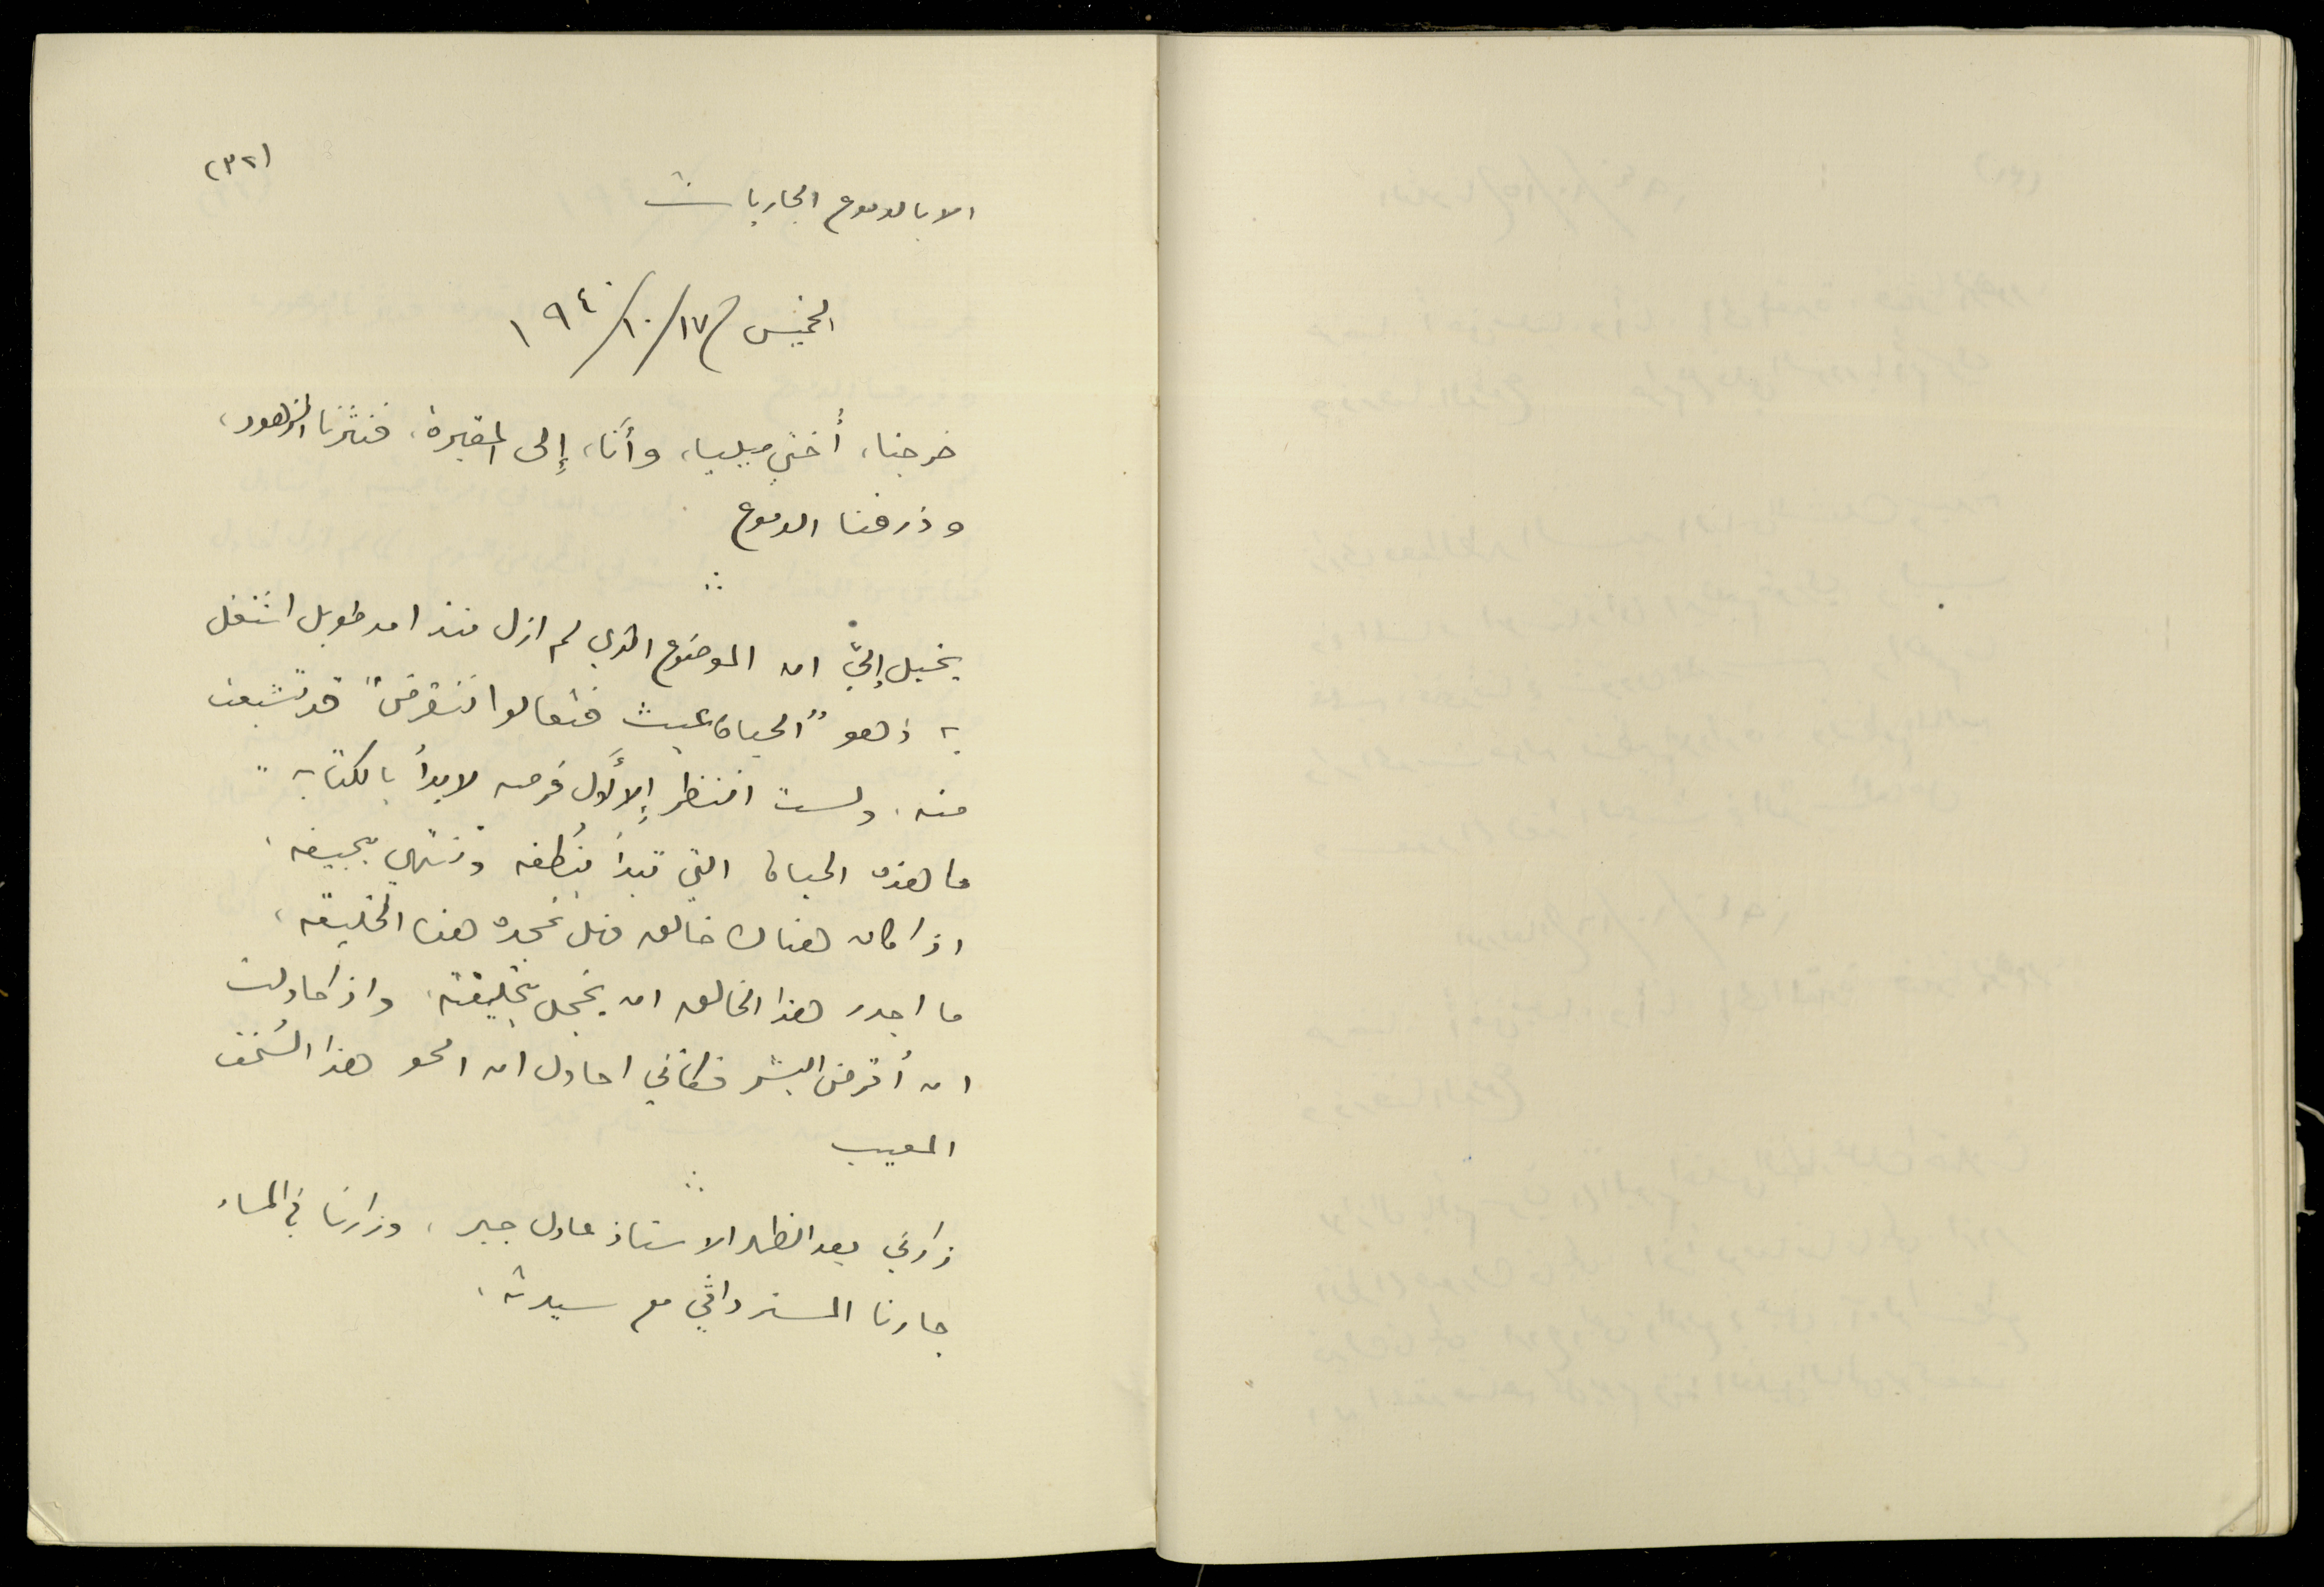 (٣٢)
الا بالدموع الجاريات
الخميس ١٧/١٠/١٩٤٠
خرجنا، أختي ميليا، وأنا، إلى المقبرة، فنثرنا الزهور،
وذرفنا الدموع
يخيل إليّ ان الموضوع الذي لم ازل منذ امد طويل اشتغل
به وهو "الحياة عبث فتعالوا ننقرض" قد تشبعت
منه. ولست انتظر إلا أول فرصه لابدأ بالكتابه
ما هذه الحياة التي تبدأ بنُطفه وتنتهي بجيفه.
اذا كان هناك خالق فهل تمجده هذه الخليقه،
ما اجدر هذا الخالق ان يخجل بخليقته. واذا حاولت
ان أقرض البشر فكأني احاول ان امحو هذا السُخف
المعيب
زارني بعد الظهر الاستاذ عادل جبر، وزارنا في المساء
جارنا المستر داڤي مع سيدته.